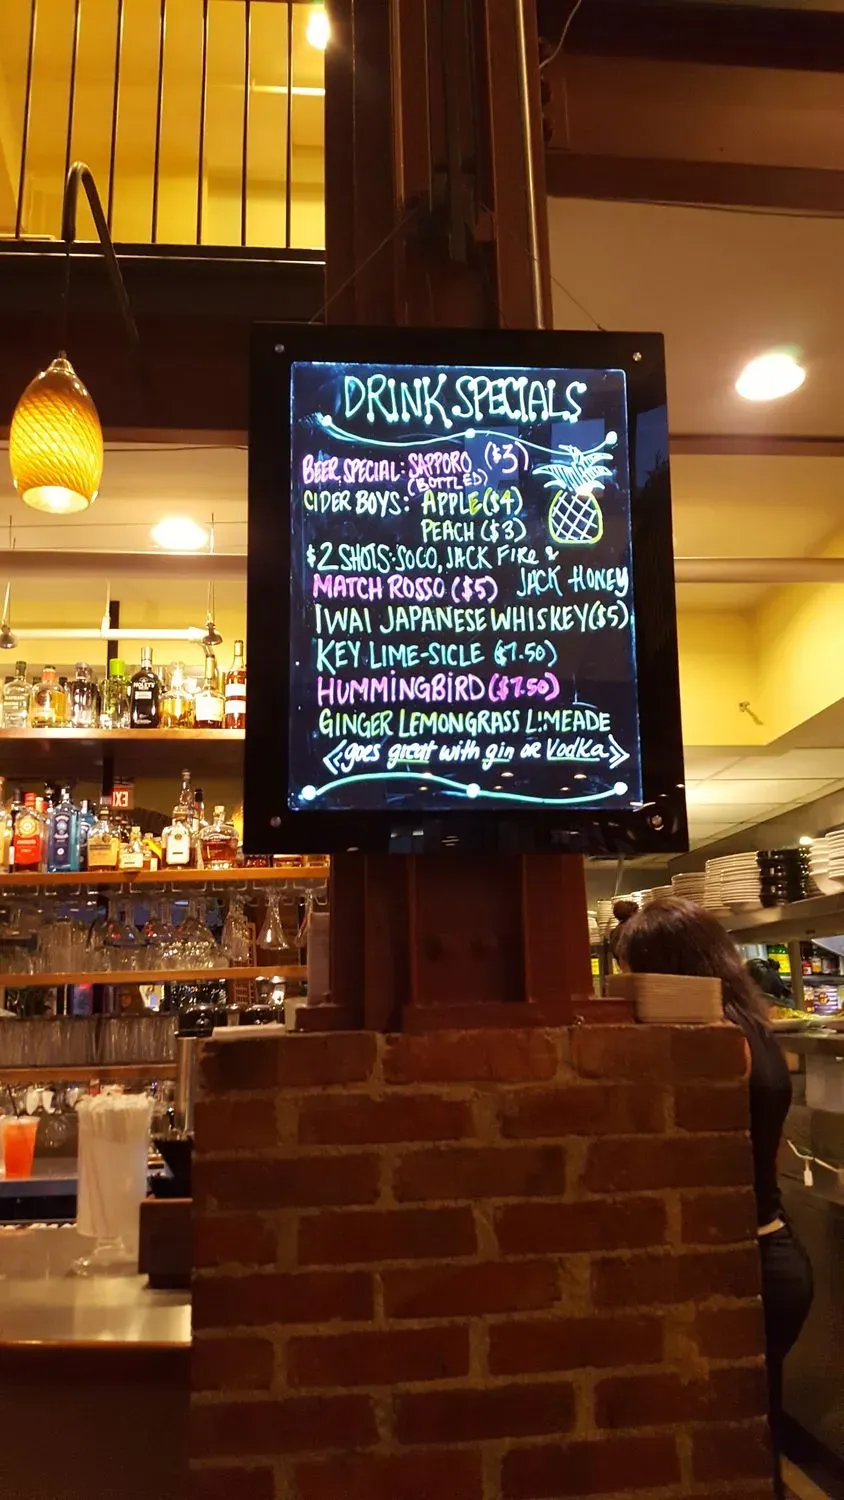 DRINK SPECIALS
BEER SPECIAL: SAPPORO ($3)
(BOTTLED)
CIDER BOYS: APPLE ($4)
PEACH ($3)
$2 SHOTS: SOCO, JACK FIRE &
JACK HONEY
MATCH ROSSO ($5)
IWAI JAPANESE WHISKEY ($5)
KEY LIME-SICLE ($7.50)
HUMMINGBIRD ($7.50)
GINGER LEMONGRASS L!MEADE
<goes great with gin or Vodka>
EXIT